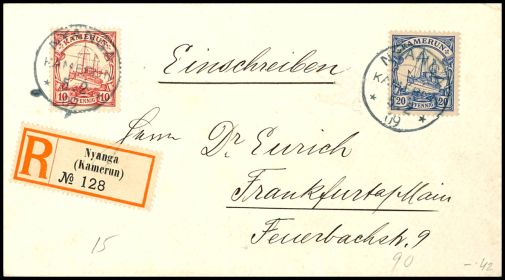 KAMERUN
10 10
PFENNIG
KAMERUN
20 20
PFENNIG
09
Einschreiben
R
Nyanga
(Kamerun)
№ 128
Herrn Dr. Eurich
Frankfurt a/Main
Feuerbachstr. 9
15
90
-.42